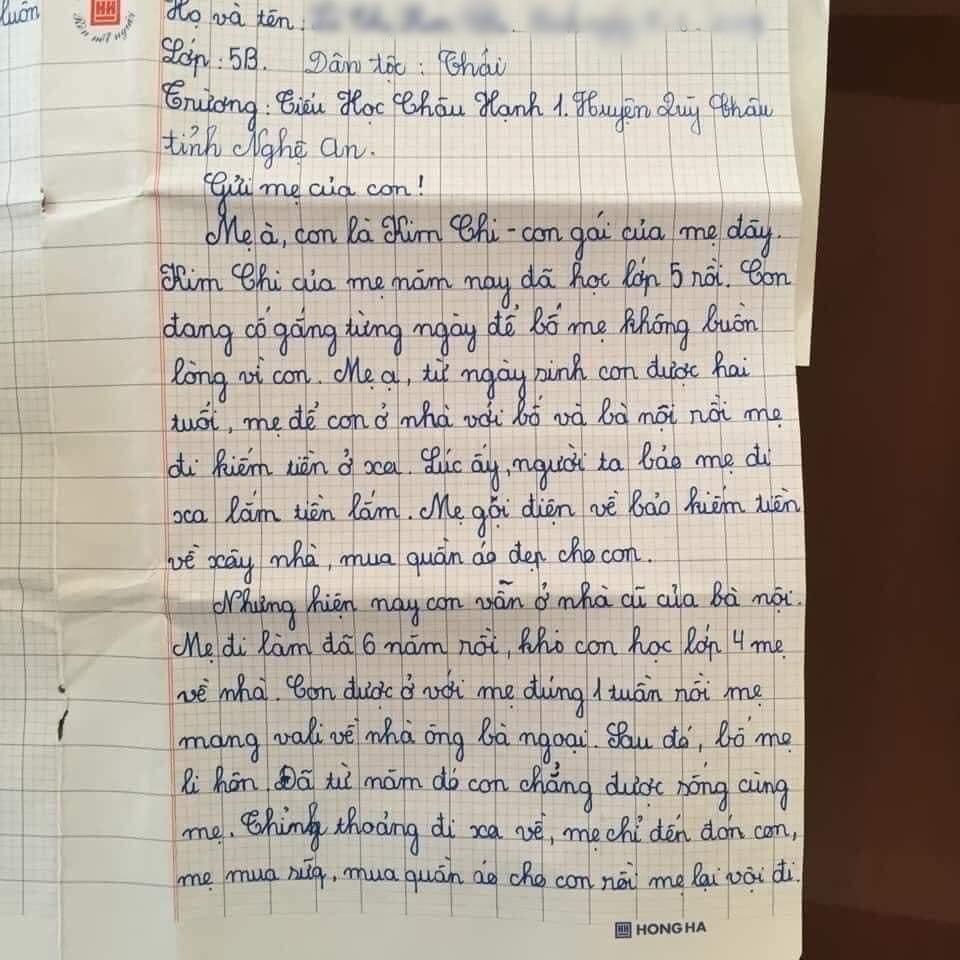 luôn
HH
Nét chữ nết người
Họ và tên:
Lớp: 5B. Dân tộc: Thái
Trường: Tiểu Học Châu Hạnh 1. Huyện Quỳ Châu
tỉnh Nghệ An.
Gửi mẹ của con!
Mẹ à, con là Kim Chi - con gái của mẹ đây.
Kim Chi của mẹ năm nay đã học lớp 5 rồi. Con
đang cố gắng từng ngày để bố mẹ không buồn
lòng vì con. Mẹ ạ, từ ngày sinh con được hai
tuổi, mẹ để con ở nhà với bố và bà nội rồi mẹ
đi kiếm tiền ở xa. Lúc ấy, người ta bảo mẹ đi
xa lắm tiền lắm. Mẹ gọi điện về bảo kiếm tiền
về xây nhà, mua quần áo đẹp cho con.
Nhưng hiện nay con vẫn ở nhà cũ của bà nội.
Mẹ đi làm đã 6 năm rồi, khi con học lớp 4 mẹ
về nhà. Con được ở với mẹ đúng 1 tuần rồi mẹ
mang vali về nhà ông bà ngoại. Sau đó, bố mẹ
li hôn. Đã từ năm đó con chẳng được sống cùng
mẹ. Thỉnh thoảng đi xa về, mẹ chỉ đến đón con,
mẹ mua sữa, mua quần áo cho con rồi mẹ lại vội đi.
HH HONG HA